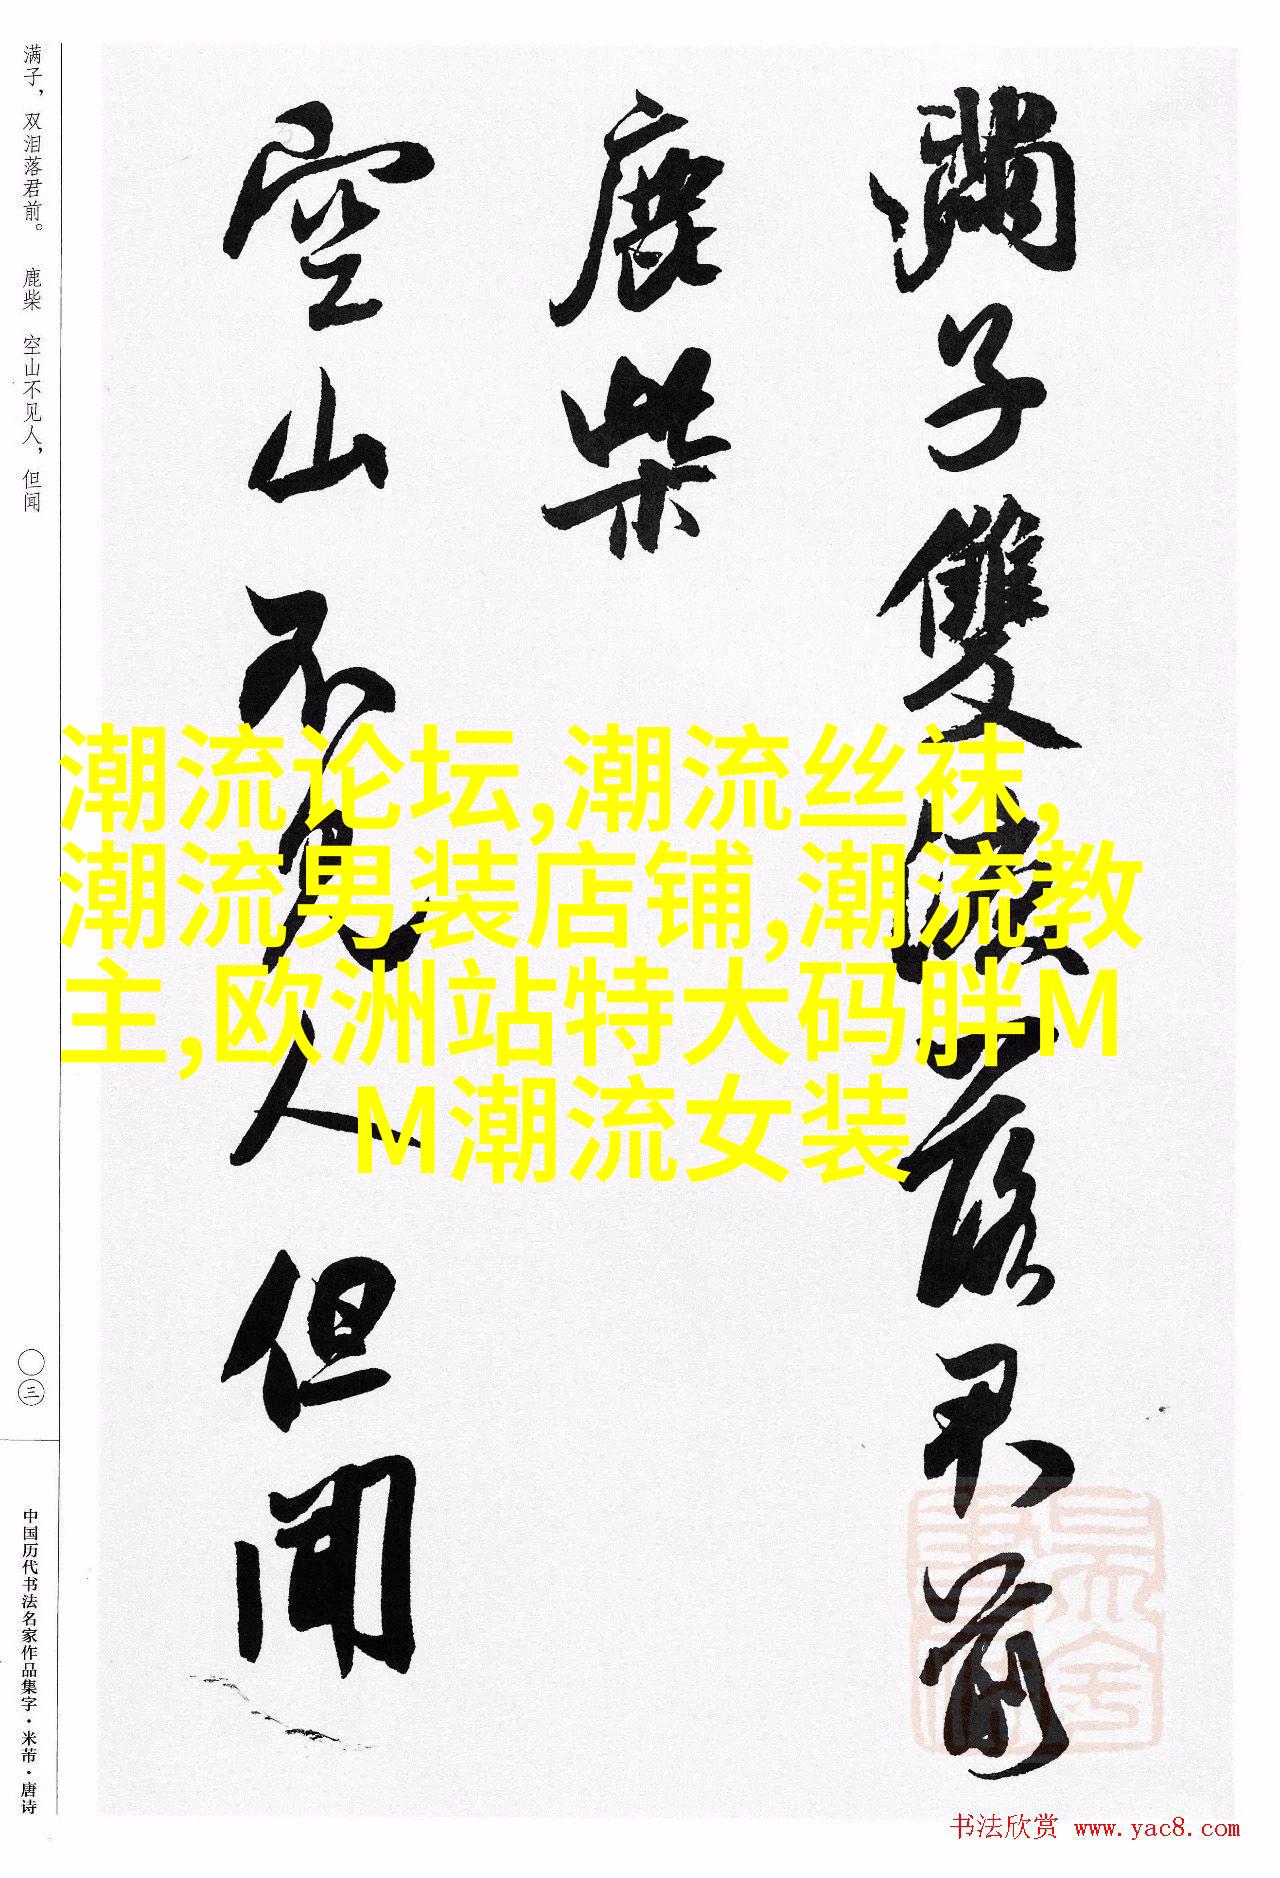 满子，双泪落君前。 鹿柴 空山不见人，但闻
滿子雙淚落君前
鹿柴
空山不見人但聞
潮流论坛,潮流丝袜,
潮流男装店铺,潮流教
主,欧洲站特大码胖M
M潮流女装
〇三
中国历代书法名家作品集字·米芾·唐诗
书法欣赏 www.yac8.com